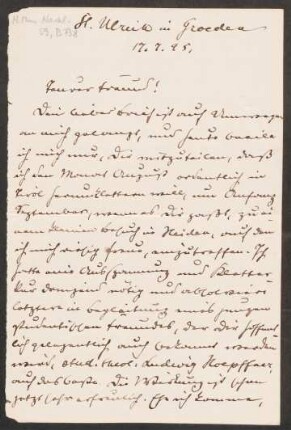 St. Ulrich in Groeden
17. 7. 25.
Teurer Freund!
Dein lieber Brief ist auf Umwegen
an mich gelangt, und heute beeile
ich mich nur, Dir mitzuteilen, daß
ich den Monat August ordentlich in
Tirol herumklettern will, um Anfang
September, wenn es Dir paßt, zu
einem kleinen Besuch in Heiden, auf den
ich mich riesig freue, anzutreten. Ich
hatte eine Ausspannung und Kletter-
kur dringend nötig und absolviere
letztere in Begleitung eines jungen
studentischen Freundes, der Dir hoffent-
lich gelegentlich auch bekannt werden
wird, stud. theol. Ludwig
auf das beste. Die Wirkung ist schon
jetzt sehr erfreulich. Ehe ich komme,